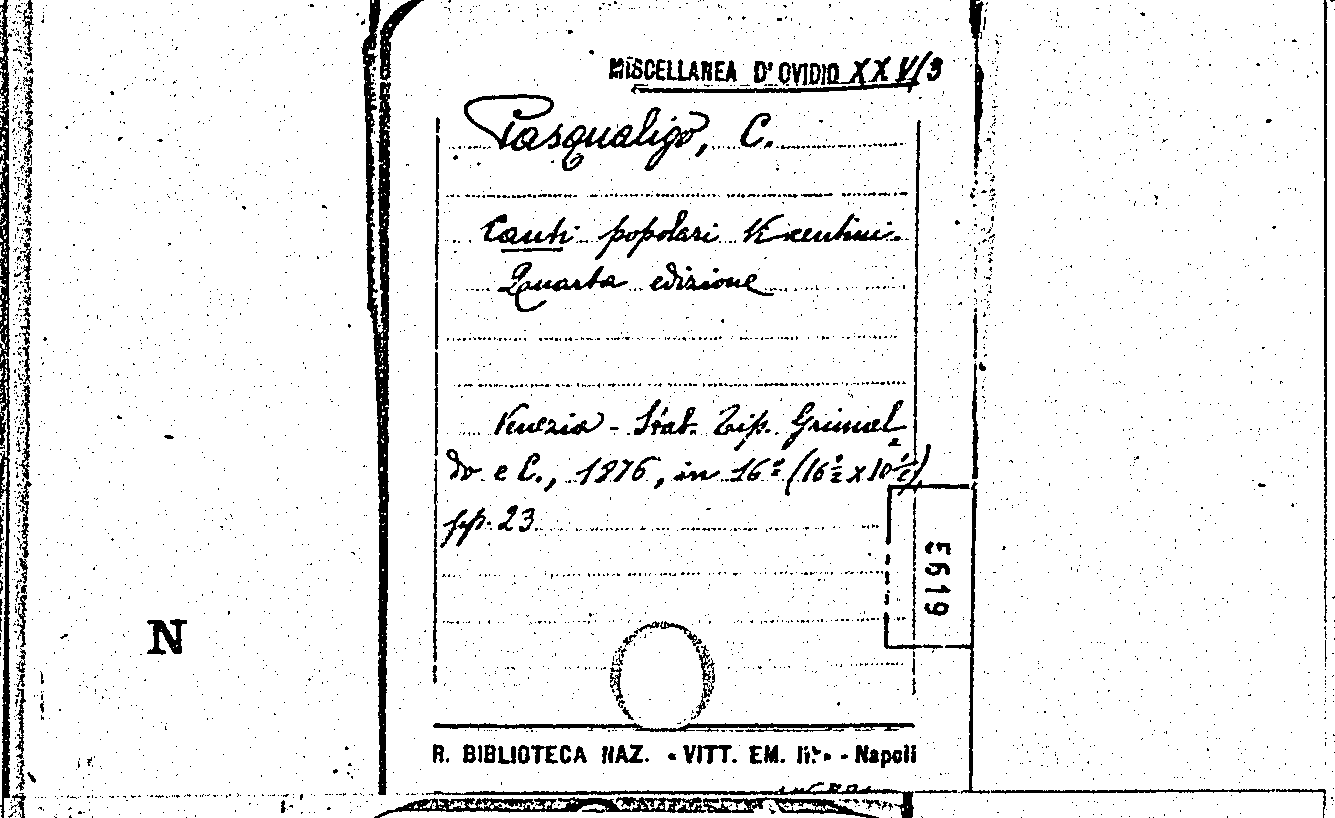 MISCELLANEA D'OVIDIO XXV/3
Pasqualigo, C.
Canti popolari Vicentini.
Quarta edizione
Venezia - Stab. Tip. Grimal-
do e C., 1876, in 16º (16½ x 10½)
pp. 23
E619
N
R. BIBLIOTECA NAZ. «VITT. EM. III» - Napoli